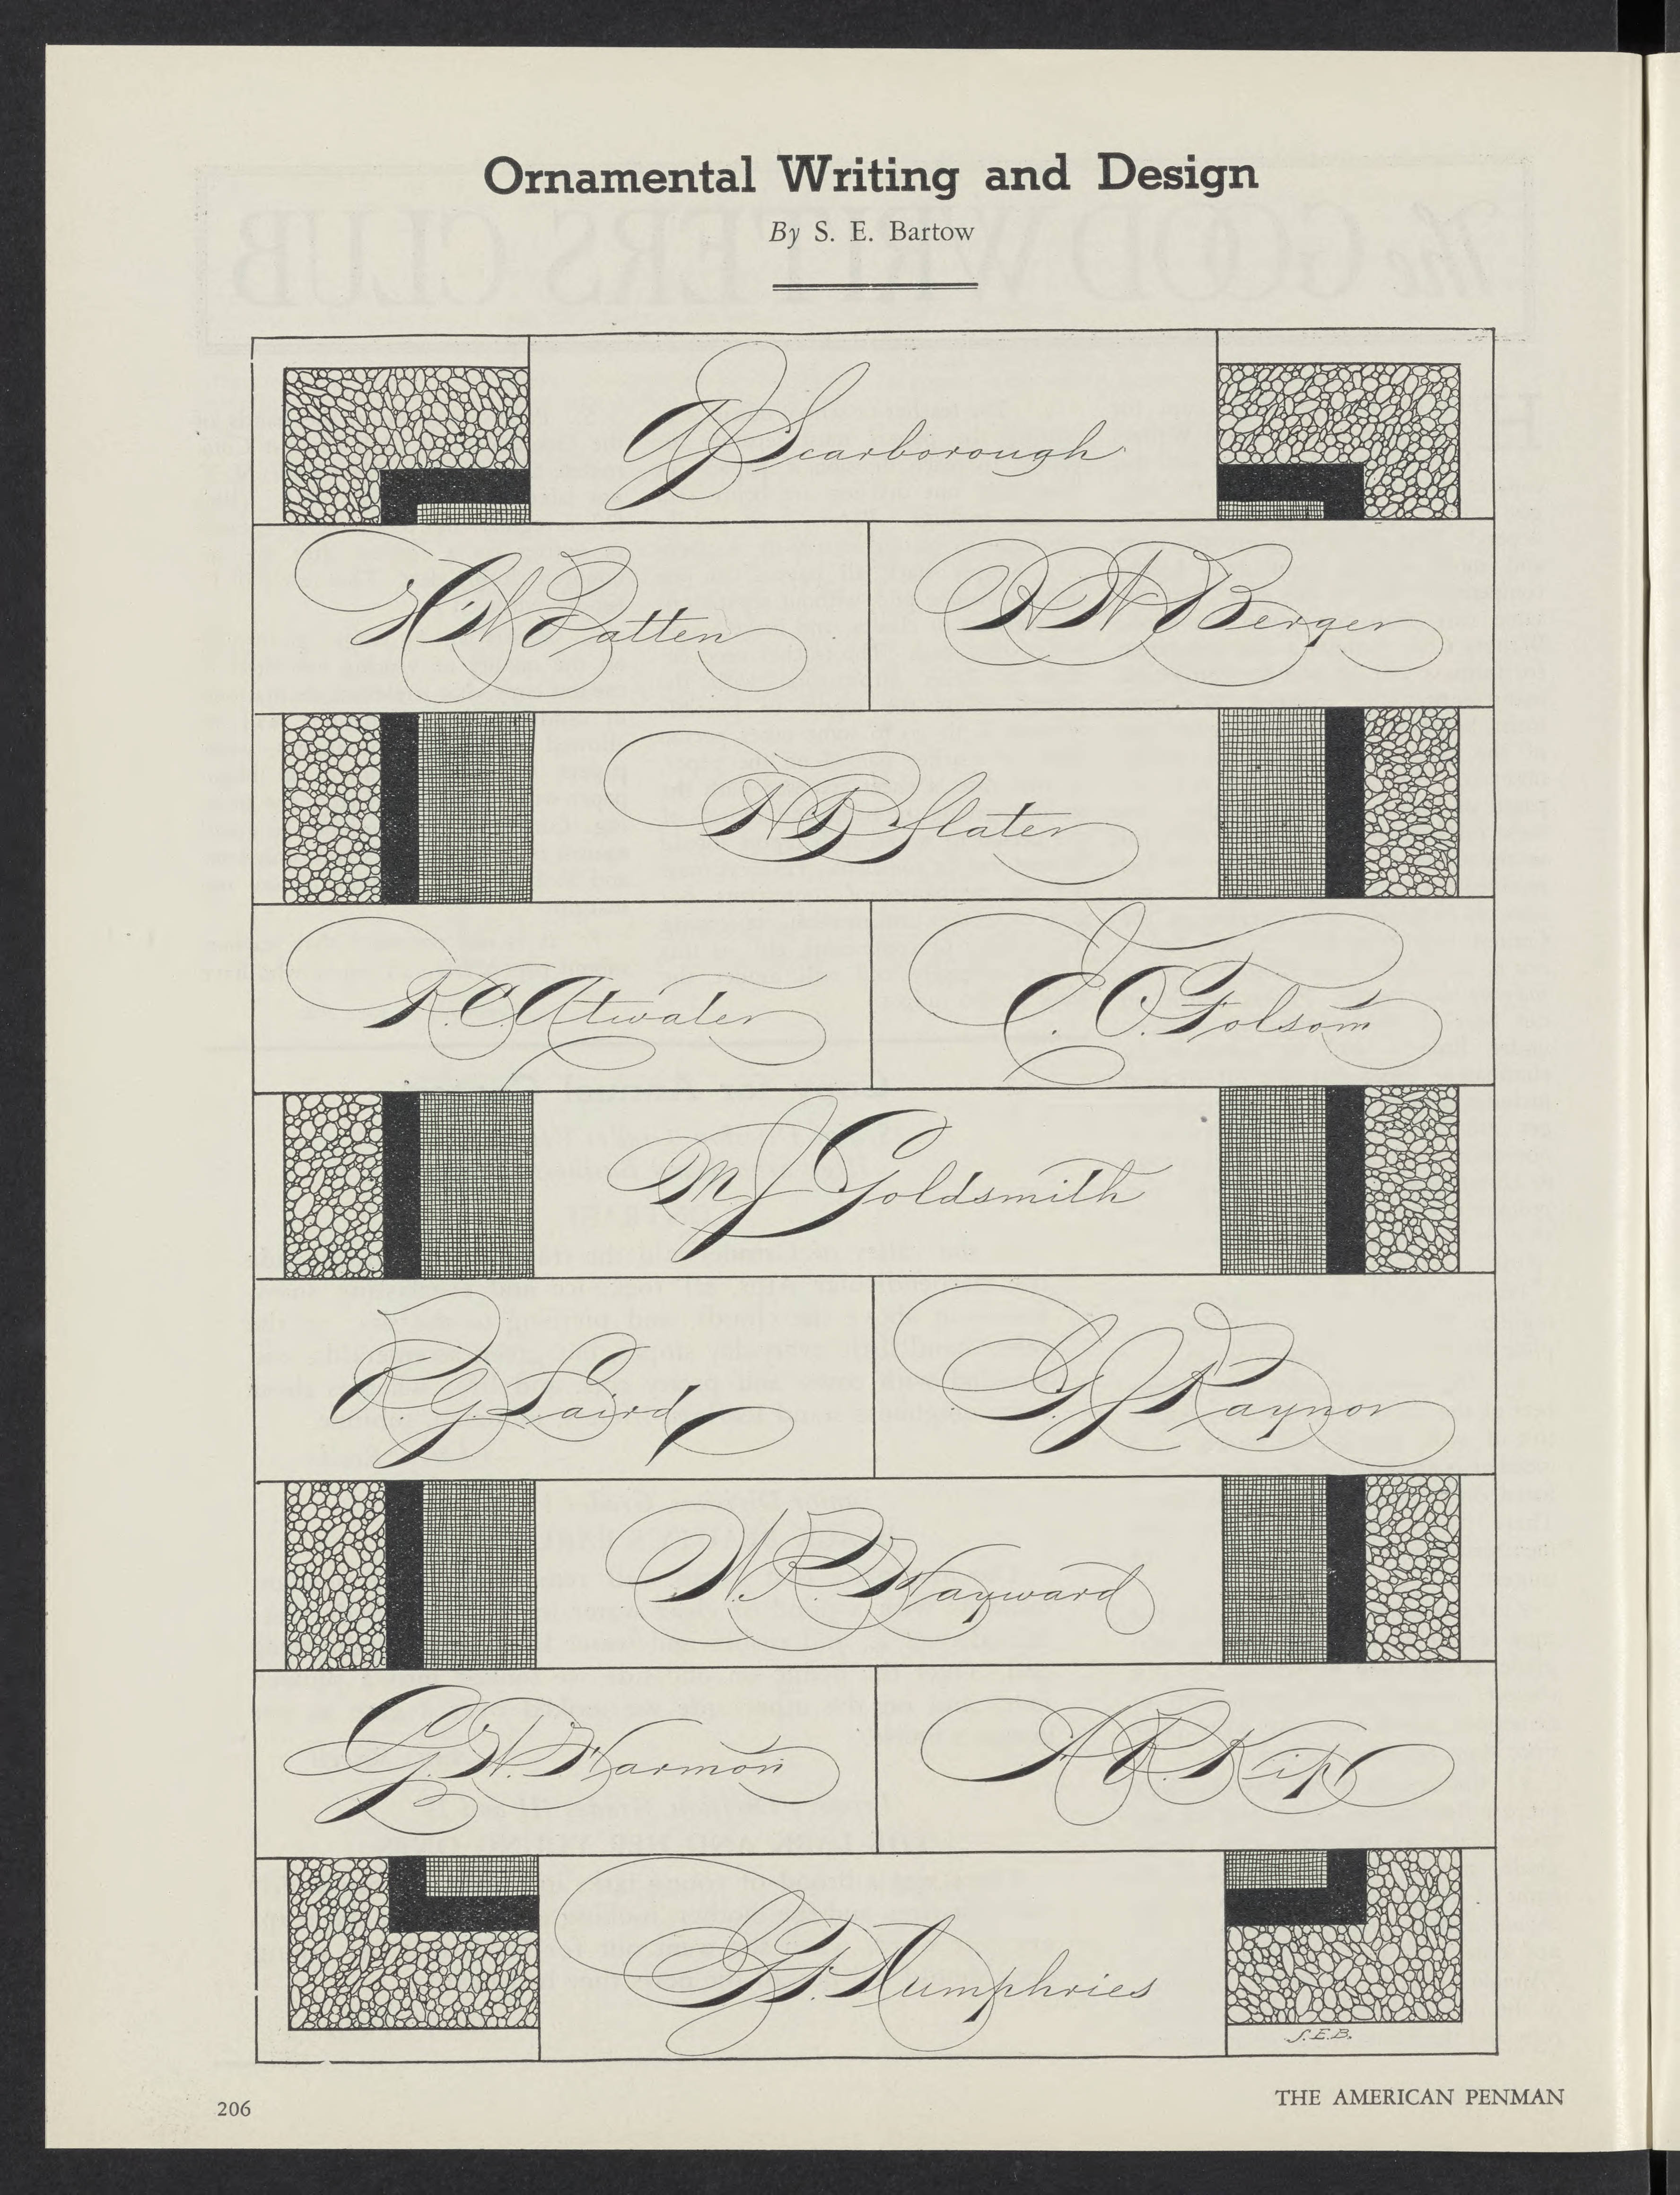 Ornamental Writing and Design
By S. E. Bartow
G J Scarborough
H. W. Patten
H W Berger
H P Slater
R. C. Atwater
E. O. Folsom
M J Goldsmith
R. G. Laird
G. J. Raynor
W. R. Hayward
G. W. Harmon
A. R. Kip
G. P. Humphries
S.E.B.
206
THE AMERICAN PENMAN